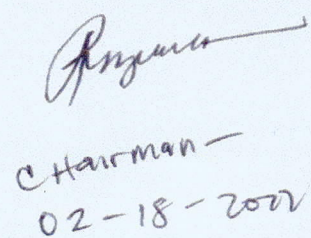 Chairman -
02-18-2022